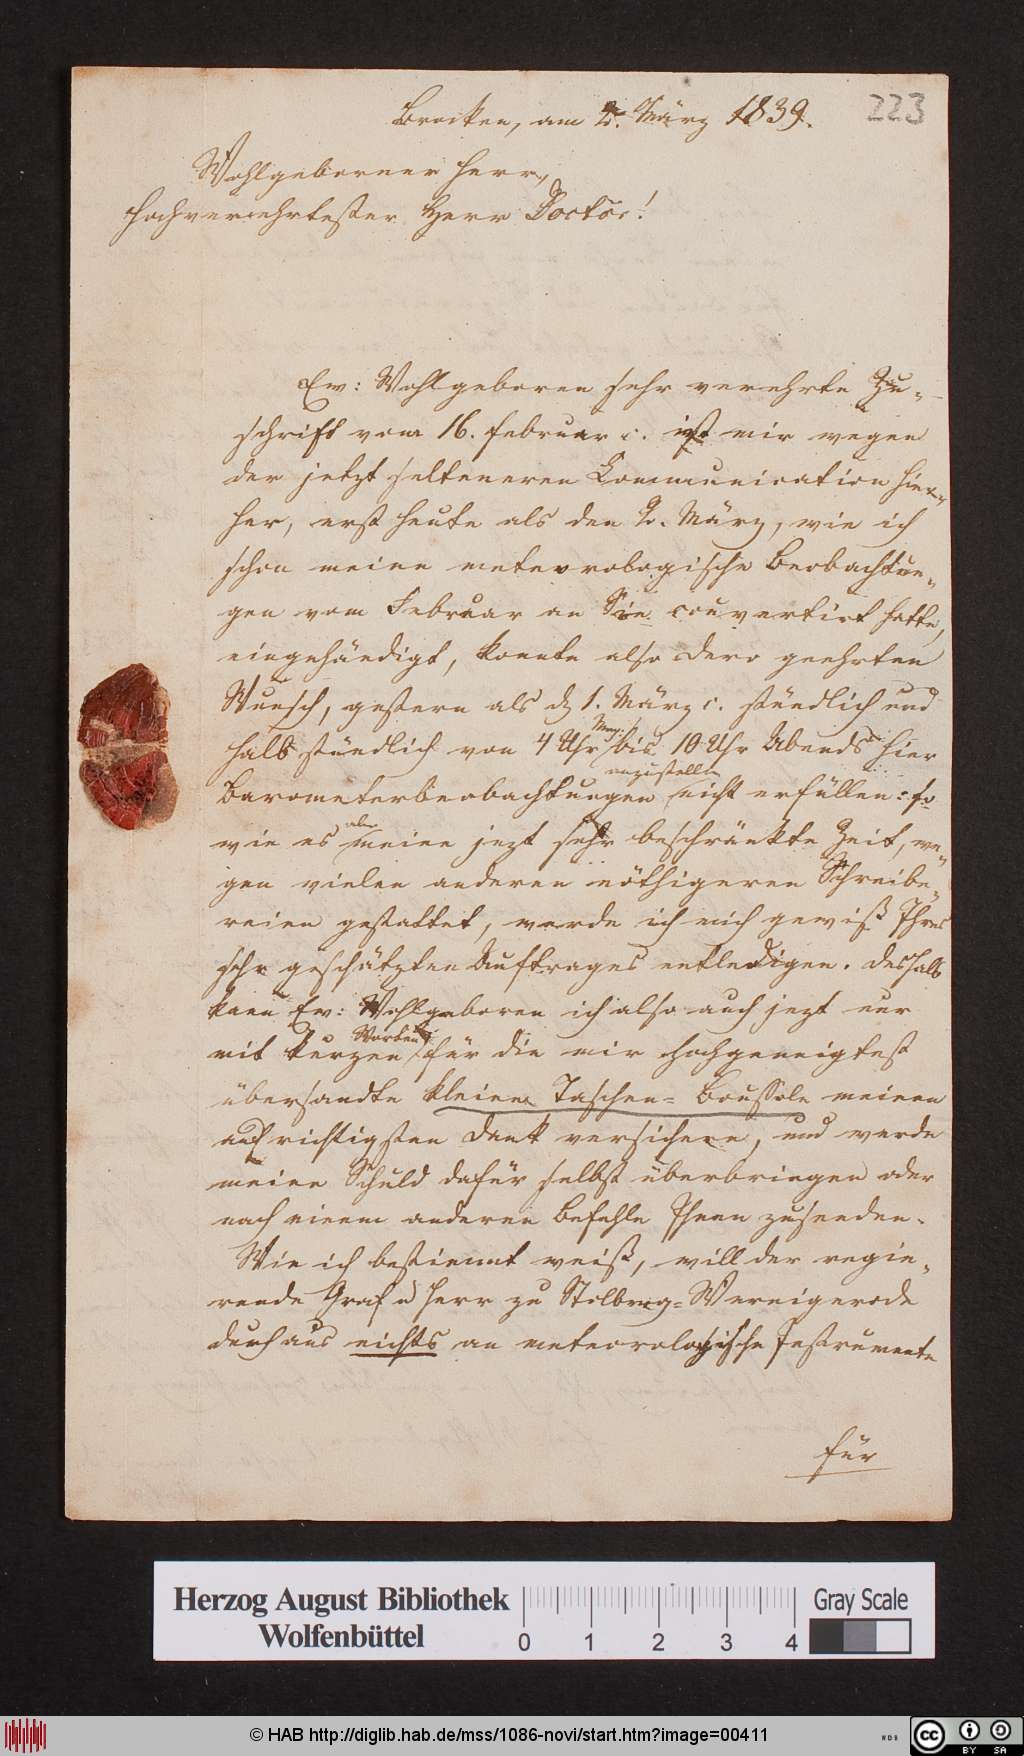 223
Brocken, am 2. März 1839.
Wohlgeborner Herr,
Hochverehrtester Herr Doctor!
Ew: Wohlgeboren sehr verehrte Zu-
schrift vom 16. Februar c. ist mir wegen
der jetzt selteneren Communication hier-
her, erst heute als den 2. März, wie ich
schon meine meteorologische Beobachtun-
gen vom Februar an Sie couvertirt hatte,
eingehändigt, konnte also dero geehrten
Wunsch, gestern als d 1. März c. stündlich und
halb stündlich von 4 Uhr Mog. bis 10 Uhr Abends hier
Barometerbeobachtungen anzustellen nicht erfüllen: so
wie es aber meine jezt sehr beschränkte Zeit, we-
gen vielen anderen nöthigeren Schreibe-
reien gestattet, werde ich mich gewiß Ihres
sehr geschätzten Auftrages entledigen. Deshalb
kann Ew: Wohlgeboren ich also auch jezt nur
mit kurzen Worten für die mir hochgeneigtest
übersandte kleine Taschen-Boussole meinen
aufrichtigsten Dank versichern, und werde
meine Schuld dafür selbst überbringen oder
nach einem anderen Befehle Ihnen zusenden.
Wie ich bestimmt weiß, will der regie-
rende Graf u Herr zu Stolberg-Wernigerode
durchaus nichts an meteorologische Instrumente
für
Herzog August Bibliothek
Wolfenbüttel
0 1 2 3 4
Gray Scale
© HAB http://diglib.hab.de/mss/1086-novi/start.htm?image=00411
WDB
cc BY SA